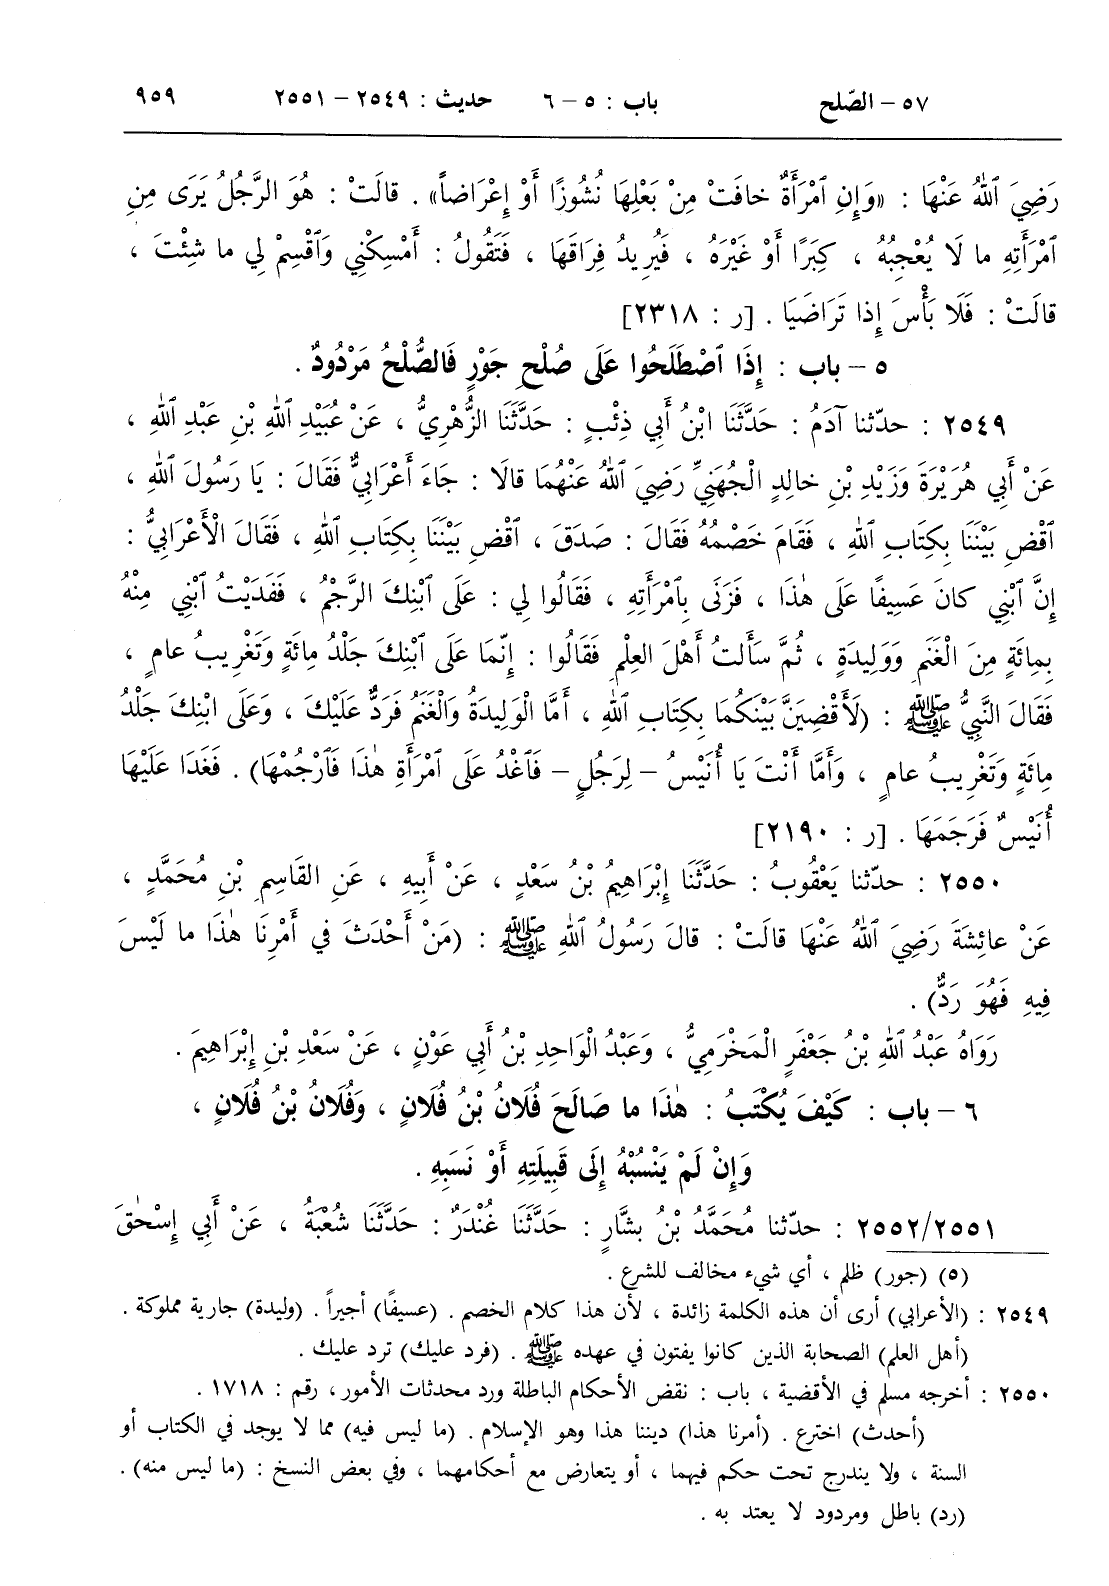 ٥٧ – الصّلح باب : ٥ – ٦ حديث : ٢٥٤٩ – ٢٥٥١ ٩٥٩
رَضِيَ ٱللهُ عَنْهَا : «وَإِنِ ٱمْرَأَةٌ خافَتْ مِنْ بَعْلِهَا نُشُوزًا أَوْ إِعْرَاضاً» . قالَتْ : هُوَ الرَّجُلُ يَرَى مِنِ
ٱمْرَأَتِهِ ما لَا يُعْجِبُهُ ، كِبَرًا أَوْ غَيْرَهُ ، فَيُرِيدُ فِرَاقَهَا ، فَتَقُولُ : أَمْسِكْنِي وَٱقْسِمْ لِي ما شِئْتَ ،
قالَتْ : فَلَا بَأْسَ إِذا تَرَاضَيَا . [ر : ٢٣١٨]
٥ – باب : إِذَا ٱصْطَلَحُوا عَلَى صُلْحِ جَوْرٍ فَالصُّلْحُ مَرْدُودٌ .
٢٥٤٩ : حدّثنا آدَمُ : حَدَّثَنَا ابْنُ أَبِي ذِئْبٍ : حَدَّثَنَا الزُّهْرِيُّ ، عَنْ عُبَيْدِ ٱللهِ بْنِ عَبْدِ ٱللهِ ،
عَنْ أَبِي هُرَيْرَةَ وَزَيْدِ بْنِ خالِدٍ الْجُهَنِيِّ رَضِيَ ٱللهُ عَنْهُمَا قالَا : جَاءَ أَعْرَابِيٌّ فَقَالَ : يَا رَسُولَ ٱللهِ ،
ٱقْضِ بَيْنَنَا بِكِتَابِ ٱللهِ ، فَقَامَ خَصْمُهُ فَقَالَ : صَدَقَ ، ٱقْضِ بَيْنَنَا بِكِتَابِ ٱللهِ ، فَقَالَ الْأَعْرَابِيُّ :
إِنَّ ٱبْنِي كانَ عَسِيفًا عَلَى هٰذَا ، فَزَنَى بِٱمْرَأَتِهِ ، فَقَالُوا لِي : عَلَى ٱبْنِكَ الرَّجْمُ ، فَفَدَيْتُ ٱبْنِي مِنْهُ
بِمِائَةٍ مِنَ الْغَنَمِ وَوَلِيدَةٍ ، ثُمَّ سَأَلْتُ أَهْلَ العِلْمِ فَقَالُوا : إِنَّما عَلَى ٱبْنِكَ جَلْدُ مِائَةٍ وَتَغْرِيبُ عامٍ ،
فَقَالَ النَّبِيُّ ﷺ : (لَأَقْضِيَنَّ بَيْنَكُمَا بِكِتَابِ ٱللهِ ، أَمَّا الْوَلِيدَةُ وَالْغَنَمُ فَرَدٌّ عَلَيْكَ ، وَعَلَى ابْنِكَ جَلْدُ
مِائَةٍ وَتَغْرِيبُ عامٍ ، وَأَمَّا أَنْتَ يَا أُنَيْسُ – لِرَجُلٍ – فَٱغْدُ عَلَى ٱمْرَأَةِ هٰذَا فَٱرْجُمْهَا) . فَغَدَا عَلَيْهَا
أُنَيْسٌ فَرَجَمَهَا . [ر : ٢١٩٠]
٢٥٥٠ : حدّثنا يَعْقُوبُ : حَدَّثَنَا إِبْرَاهِيمُ بْنُ سَعْدٍ ، عَنْ أَبِيهِ ، عَنِ القَاسِمِ بْنِ مُحَمَّدٍ ،
عَنْ عائِشَةَ رَضِيَ ٱللهُ عَنْهَا قالَتْ : قالَ رَسُولُ ٱللهِ ﷺ : (مَنْ أَحْدَثَ فِي أَمْرِنَا هٰذَا ما لَيْسَ
فِيهِ فَهُوَ رَدٌّ) .
رَوَاهُ عَبْدُ ٱللهِ بْنُ جَعْفَرٍ الْمَخْرَمِيُّ ، وَعَبْدُ الْوَاحِدِ بْنُ أَبِي عَوْنٍ ، عَنْ سَعْدِ بْنِ إِبْرَاهِيمَ .
٦ – باب : كَيْفَ يُكْتَبُ : هٰذَا ما صَالَحَ فُلَانُ بْنُ فُلَانٍ ، وَفُلَانُ بْنُ فُلَانٍ ،
وَإِنْ لَمْ يَنْسُبْهُ إِلَى قَبِيلَتِهِ أَوْ نَسَبِهِ .
٢٥٥٢/٢٥٥١ : حدّثنا مُحَمَّدُ بْنُ بشَّارٍ : حَدَّثَنَا غُنْدَرٌ : حَدَّثَنَا شُعْبَةُ ، عَنْ أَبِي إِسْحٰقَ
(٥) (جور) ظلم ، أي شيء مخالف للشرع .
٢٥٤٩ : (الأعرابي) أرى أن هذه الكلمة زائدة ، لأن هذا كلام الخصم . (عسيفًا) أجيراً . (وليدة) جارية مملوكة .
(أهل العلم) الصحابة الذين كانوا يفتون في عهده ﷺ . (فرد عليك) ترد عليك .
٢٥٥٠ : أخرجه مسلم في الأقضية ، باب : نقض الأحكام الباطلة ورد محدثات الأمور ، رقم : ١٧١٨ .
(أحدث) اخترع . (أمرنا هذا) ديننا هذا وهو الإسلام . (ما ليس فيه) مما لا يوجد في الكتاب أو
السنة ، ولا يندرج تحت حكم فيهما ، أو يتعارض مع أحكامهما ، وفي بعض النسخ : (ما ليس منه) .
(رد) باطل ومردود لا يعتد به .